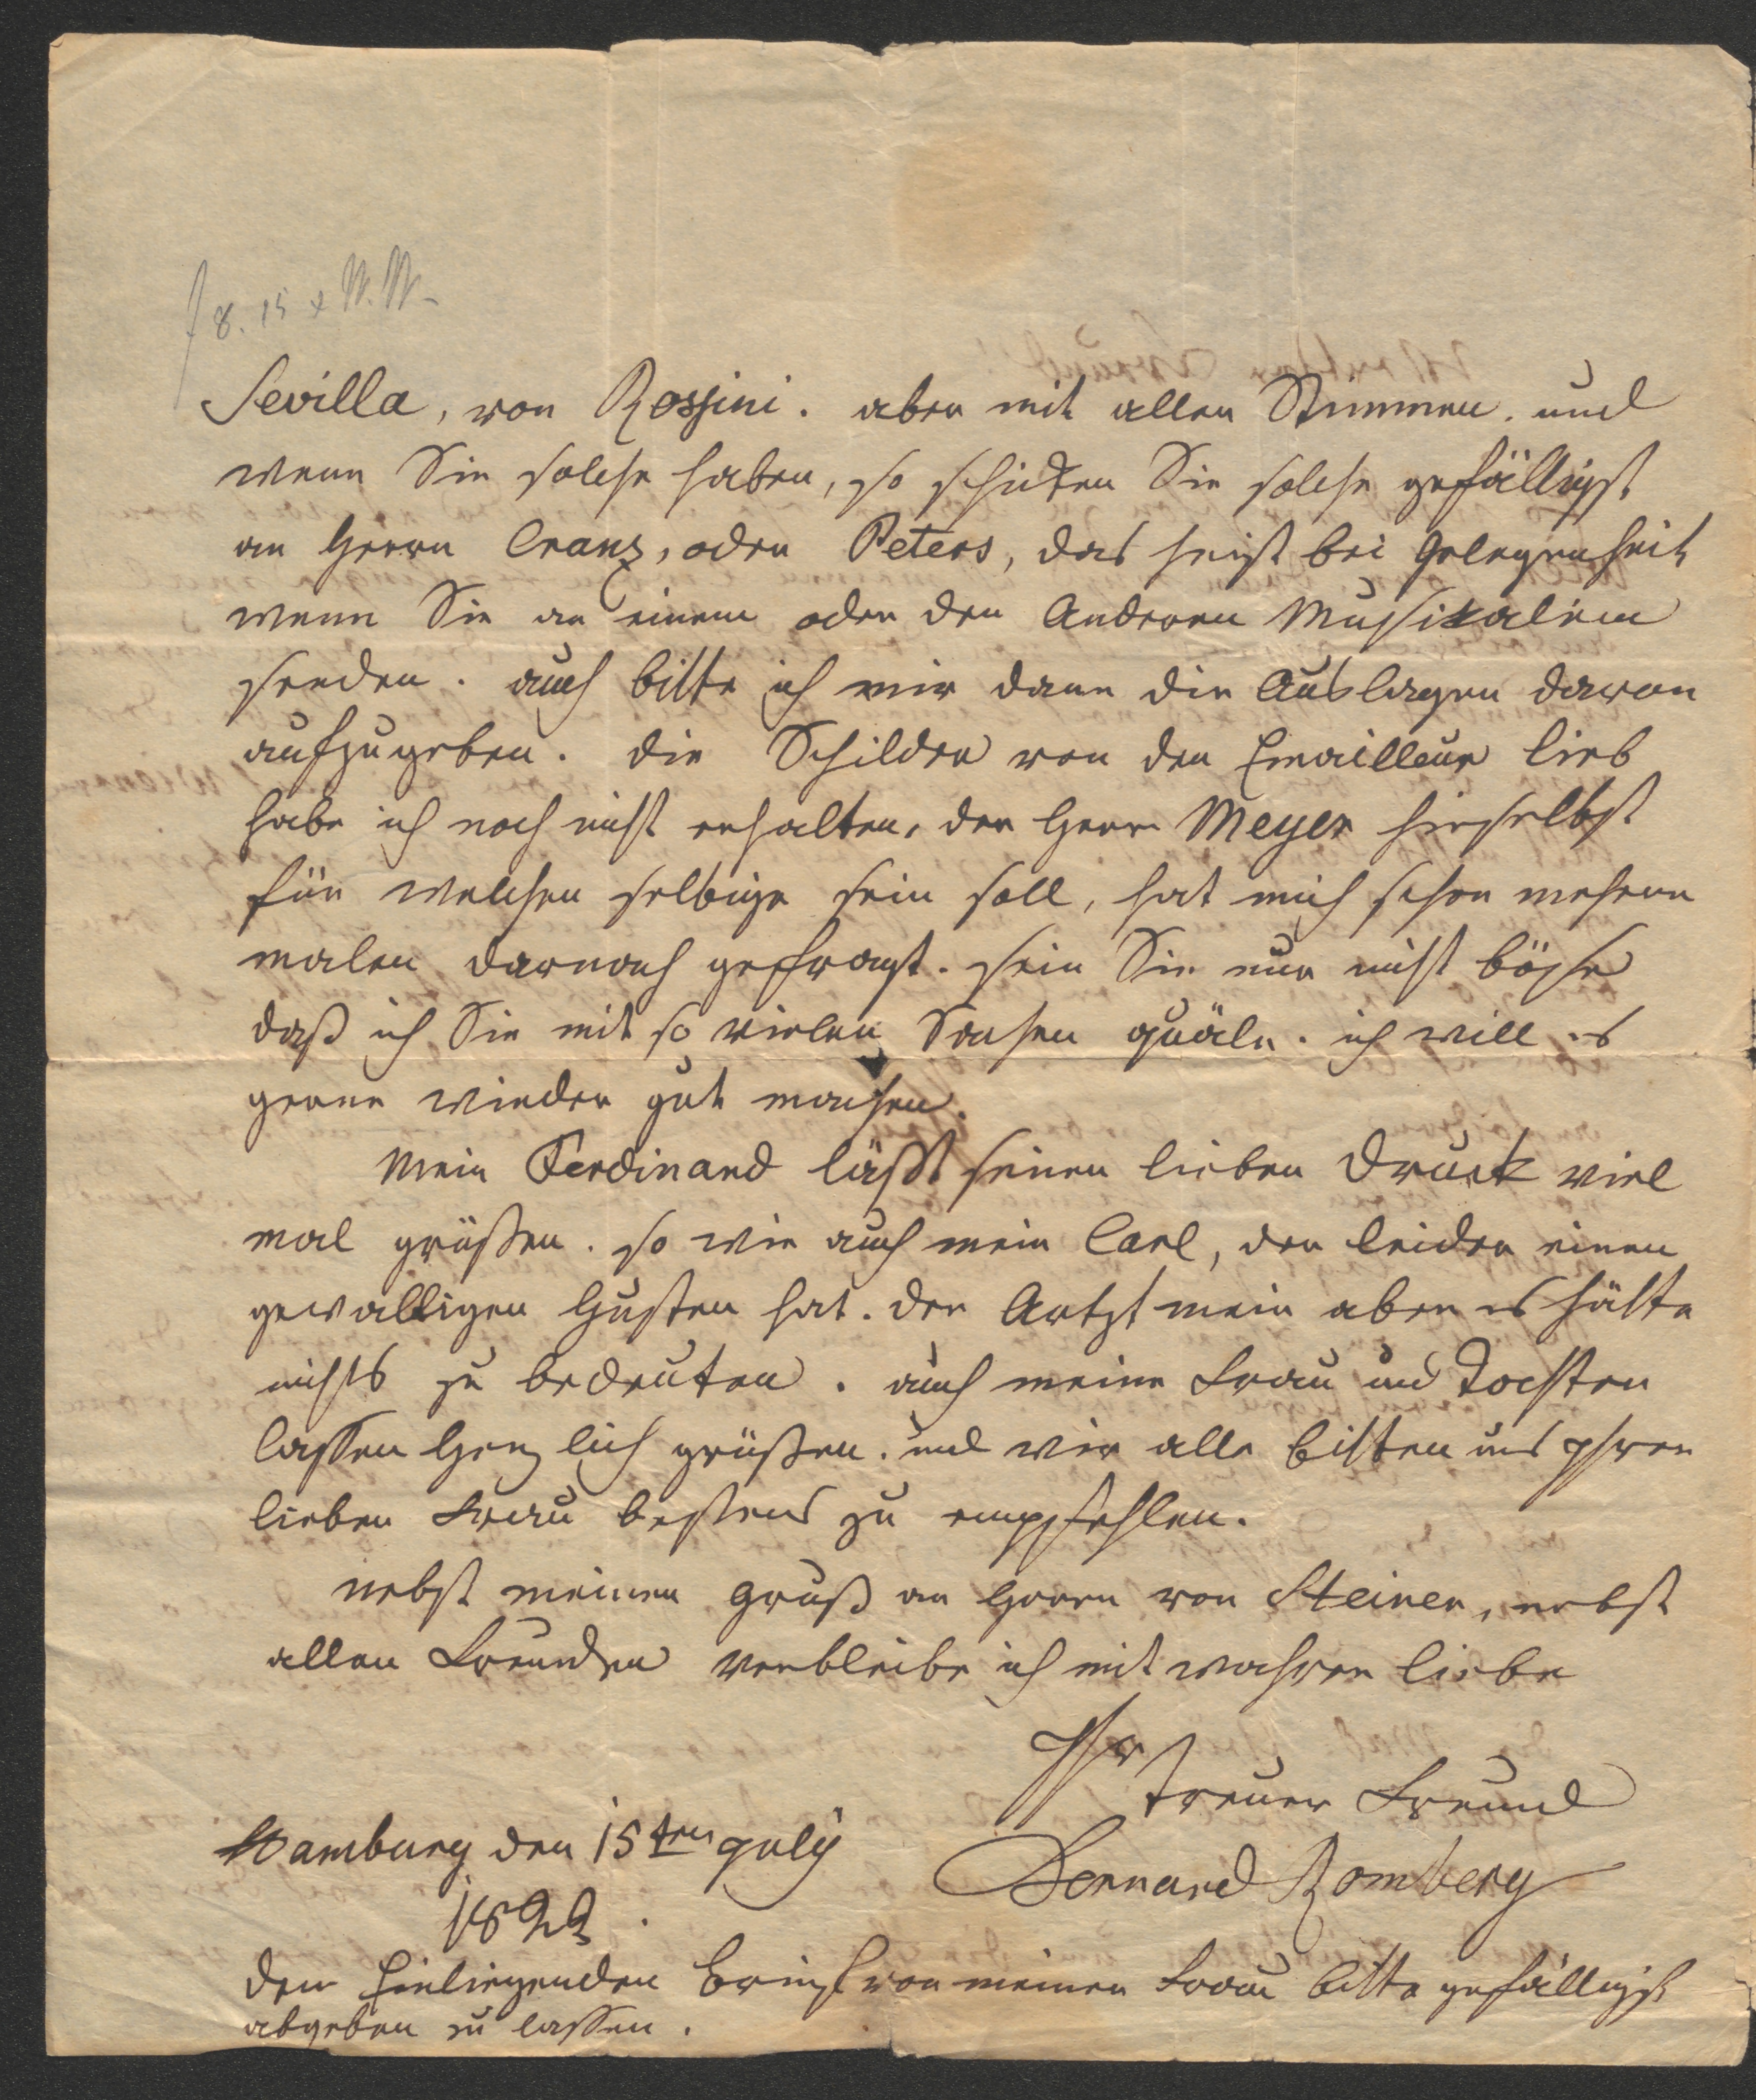 f 8. 15 x W. W.
Sevilla, von Rossini. aber mit allen Stimmen. und
wenn Sie solche haben, so schicken Sie solche gefälligst
an Herrn Cranz, oder Peters, das heist bei Gelegenheit
wenn Sie an einem oder den Anderen Musikalien
senden. auch bitte ich mir dann die Auslagen davon
aufzugeben. die Schilder von den Emailleur lieb
habe ich noch nicht erhalten, der Herr Meyer hieselbst
für welchen selbige sein soll, hat mich schon mehrere
malen darnach gefragt. sein Sie nur nicht böse
daß ich Sie mit so vielen Sachen quäle. ich will es
gerne wieder gut machen.
Mein Ferdinand läßt seinen lieben Druck viel
mal grüßen. so wie auch mein Carl, der leider einen
gewaltigen Husten hat. der Artzt mein aber es hätte
nichts zu bedeuten. auch meine Frau und Tochter
lassen Herzlich grüßen. und wir alle bitten uns Ihrer
lieben Frau bestens zu empfehlen.
nebst meinen Gruß an Herrn von Steiner, nebst
allen Freunden verbleibe ich mit wahrer liebe
Ihr
treuer Freund
Hamburg den 15ten July
Bernard Romberg
1822.
den Einliegenden Brief von meiner Frau bitte gefälligst
abgeben zu lassen.